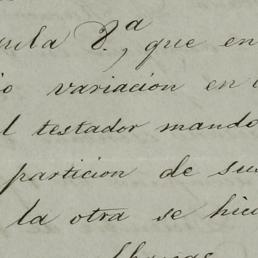 que en
variación en
testador mando
particion de sus
la otra se hic